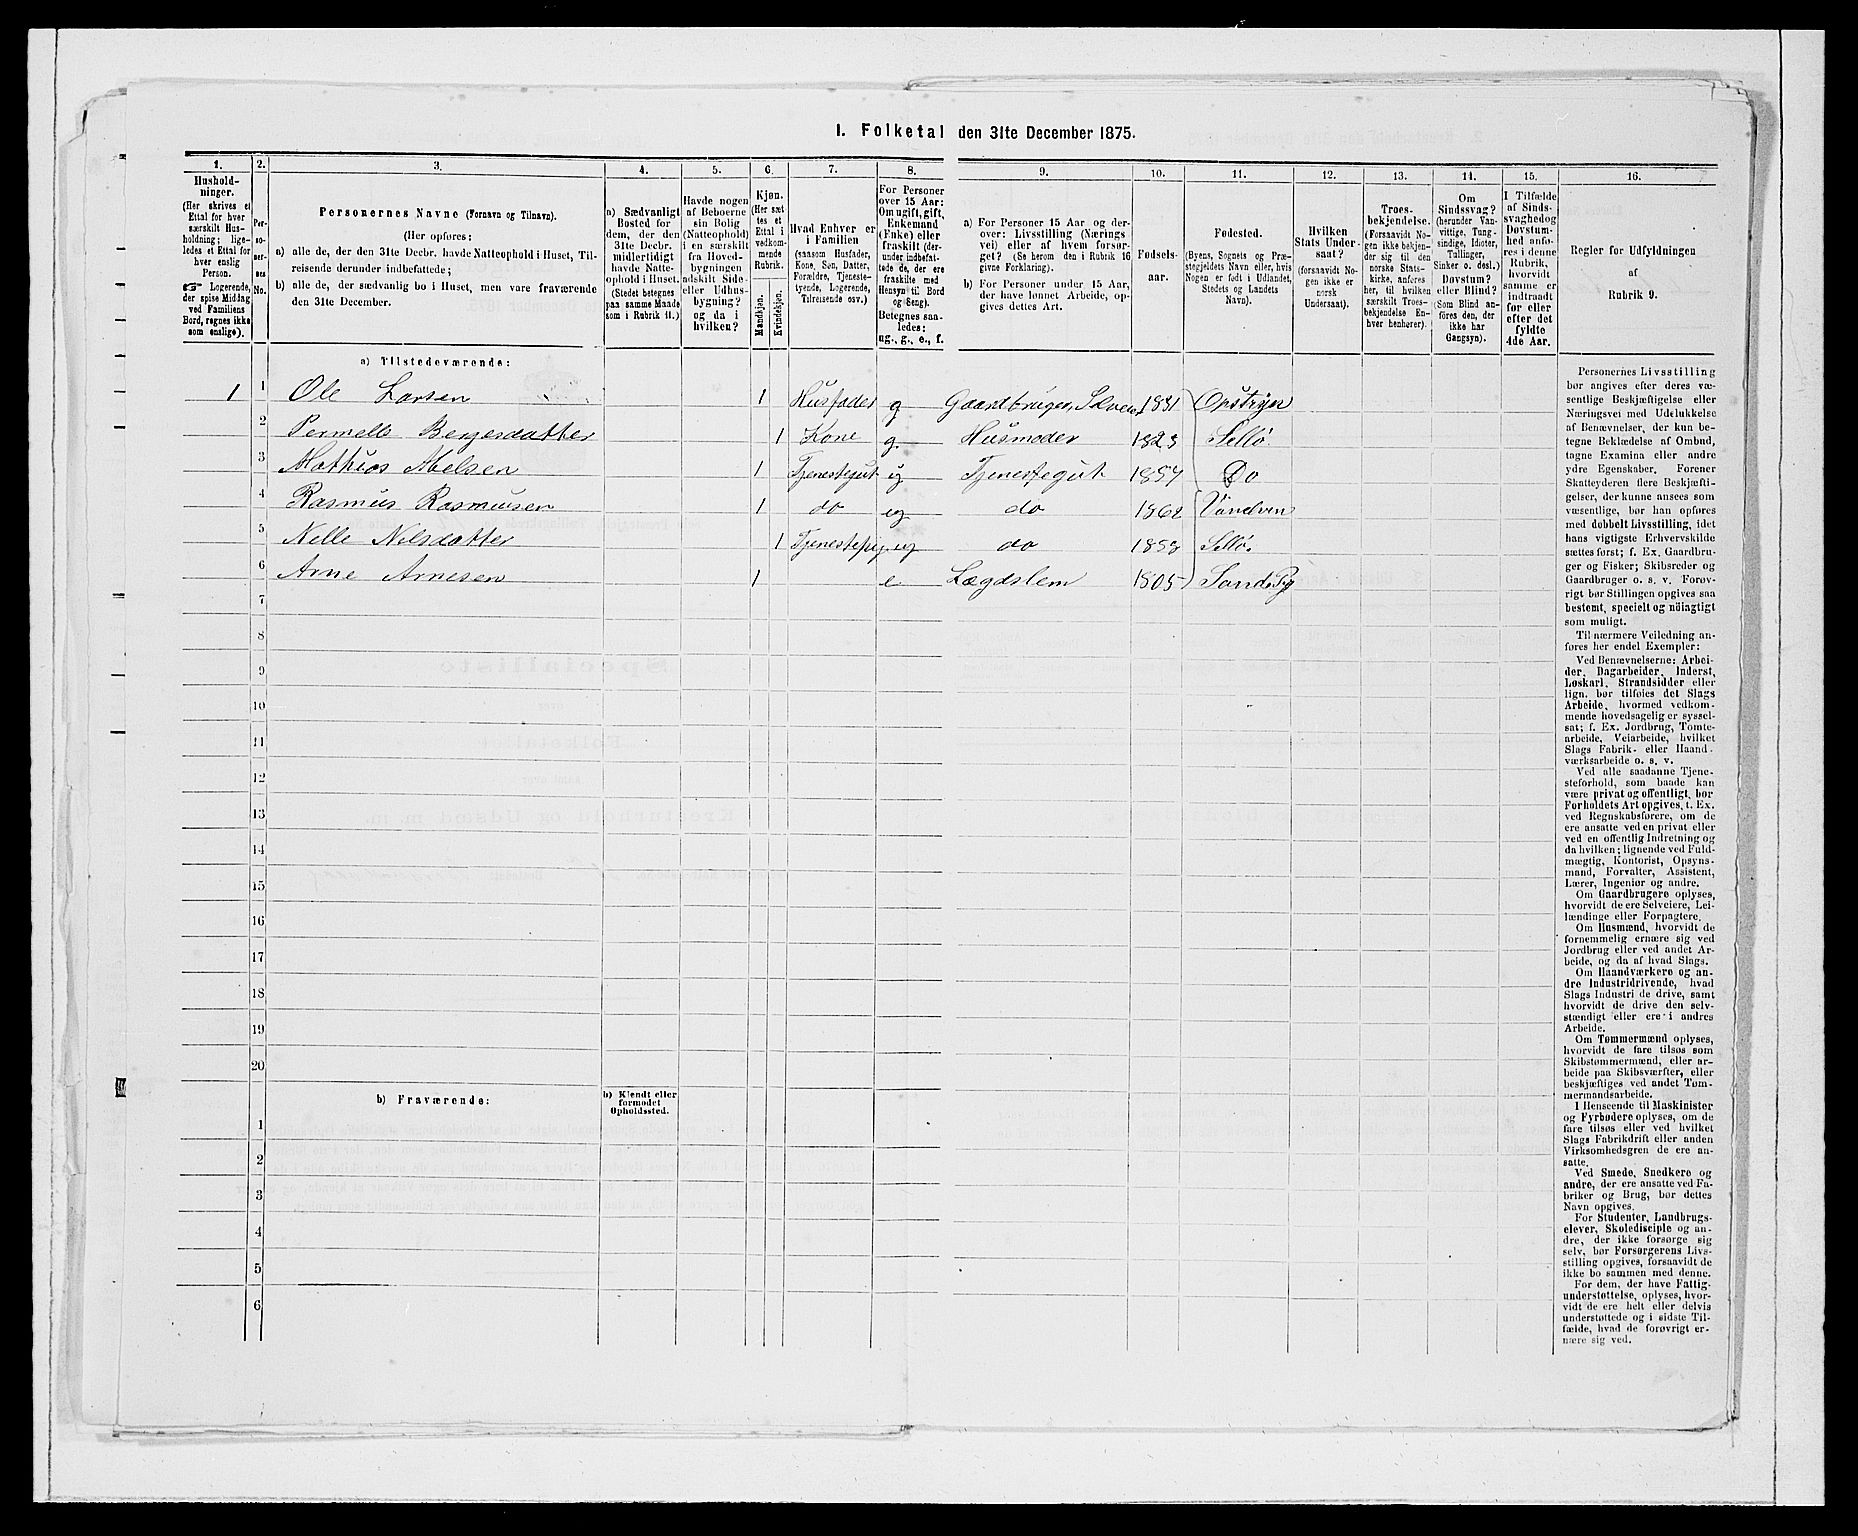 I. Folketal den 31te December 1875.
1.
Hushold-
ninger.
(Her skrives et
Ettal for hver
særskilt Hus-
holdning; lige-
ledes et Ettal for
hver enslig
Person.
☞ Logerende,
der spise Middag
ved Familiens
Bord, regnes ikke
som enslige).
2.
Per-
so-
ner-
nes
No.
3.
Personernes Navne (Fornavn og Tilnavn).
(Her opføres:
a) alle de, der den 31te Decbr. havde Natteophold i Huset, Til-
reisende derunder indbefattede;
b) alle de, der sædvanlig bo i Huset, men vare fraværende
den 31te December.
4.
a) Sædvanligt
Bosted for
dem, der den
31te Decbr.
midlertidigt
havde Natte-
ophold i Huset.
(Stedet betegnes
paa samme Maade
som i Rubrik 11.)
5.
Havde nogen
af Beboerne
sin Bolig
(Natteophold)
i en særskilt
fra Hoved-
bygningen
adskilt Side-
eller Udhus-
bygning?
og da i
hvilken?
6.
Kjøn.
(Her sæt
tes et
Ettal i
vedkom-
mende
Rubrik.
Mandkjøn.
Kvindekjøn.
7.
Hvad Enhver er
i Familien
(saasom Husfader,
Kone, Søn, Datter,
Forældre, Tjeneste-
tyende, Logerende,
Tilreisende osv.)
8.
For Personer
over 15 Aar:
Om ugift, gift,
Enkemand
(Enke) eller
fraskilt (der-
under indbefat-
tede de, der ere
fraskilte med
Hensyn til Bord
og Seng).
Betegnes saa-
ledes:
ug., g., e., f.
9.
a) For Personer 15 Aar og der-
over: Livsstilling (Nærings
vei) eller af hvem forsør-
get? (Se herom den i Rubrik 16
givne Forklaring).
b) For Personer under 15 Aar,
der have lønnet Arbeide, op-
gives dettes Art.
10.
Fødsels-
aar.
11.
Fødested.
(Byens, Sognets og Præ-
stegjeldets Navn eller, hvis
Nogen er født i Udlandet,
Stedets og Landets
Navn).
12.
Hvilken
Stats Under-
saat?
(forsaavidt No-
gen ikke er
norsk
Undersaat).
13.
Troes-
bekjendelse.
(Forsaavidt No-
gen ikke bekjen-
der sig til den
norske Stats-
kirke, anføres
her, til hvilken
særskilt Troes-
bekjendelse En-
hver henhører).
14.
Om
Sindssvag?
(herunder Van-
vittige, Tung-
sindige, Idioter,
Tullinger,
Sinker o. desl.)
Døvstum?
eller Blind?
(Som Blind an-
føres den, der
ikke har
Gangsyn).
15.
I Tilfælde
af Sinds-
svaghed og
Døvstum-
hed anfø-
res i denne
Rubrik,
hvorvidt
samme er
indtraadt
før eller
efter det
fyldte
4de Aar.
16.
Regler for Udfyldningen
af
Rubrik 9.
a) Tilstedeværende:
1 1 Ole Larsen 1 Husfader g Gaardbruger, Selveier 1831 Opstryn
2 Pernelle Bergesdatter 1 Kone g Husmoder 1823 Sellø
3 Mathias Abelsen 1 Tjenestegut ug Tjenestegut 1857 Do
4 Rasmus Rasmusen 1 do ug do 1862 Vandven
5 Nelle Nilsdatter 1 Tjenestepig. ug do 1853 Sellø
6 Arne Arnesen 1 e Lægdslem 1805
7
8
9
10
11
12
13
14
15
16
17
18
19
20
b) Fraværende:
b) Kjendt eller
formodet
Opholdssted.
1
2
3
4
5
6
Personernes Livsstilling
bør angives efter deres væ-
sentlige Beskjæftigelse eller
Næringsvei med Udelukkelse
af Benævnelser, der kun be-
tegne Beklædelse af Ombud,
tagne Examina eller andre
ydre Egenskaber. Forener
Skatteyderen flere Beskjæfti-
gelser, der kunne ansees som
væsentlige, bør han opføres
med dobbelt Livsstilling, idet
hans vigtigste Erhvervskilde
sættes først; f. Ex. Gaardbru-
ger og Fisker; Skibsreder og
Gaardbruger o. s. v. Forøv-
rigt bør Stillingen opgives saa
bestemt, specielt og nöiagtigt
som muligt.
Til nærmere Veiledning an-
føres her endel Exempler:
Ved Benævnelserne: Arbei-
der, Dagarbeider, Inderst,
Løskarl, Strandsidder eller
lign. bør tilføies det Slags
Arbeide, hvormed vedkom-
mende hovedsagelig er syssel-
sat; f. Ex. Jordbrug, Tomte-
arbeide, Veiarbeide, hvilket
Slags Fabrik- eller Haand-
værksarbeide o. s. v.
Ved alle saadanne Tjene-
steforhold, som baade kan
være privat og offentligt, bør
Forholdets Art opgives, t. Ex.
ved Regnskabsførere, om de
ere ansatte ved en privat eller
ved en offentlig Indretning og
da hvilken; lignende ved Fuld-
mægtig, Kontorist, Opsyns-
mand, Forvalter, Assistent,
Lærer, Ingeniør og andre.
Om Gaardbrugere oplyses,
hvorvidt de ere Selveiere, Lei-
lændinge eller Forpagtere.
Om Husmænd, hvorvidt de
fornemmelig ernære sig ved
Jordbrug eller ved andet Ar-
beide, og da af hvad Slags.
Om Haandværkere og an-
dre Industridrivende, hvad
Slags Industri de drive, samt
hvorvidt de drive den selv-
stændigt eller ere i andres
Arbeide.
Om Tømmermænd oplyses,
hvorvidt de fare tilsøs som
Skibstømmermænd, eller ar-
beide paa Skibsværfter, eller
beskjæftiges ved andet Tøm-
mermandsarbeide.
I Henseende til Maskinister
og Fyrbødere oplyses, om de
fare tilsøs eller ved hvilket
Slags Fabrikdrift eller anden
Virksomhedsgren de ere an-
satte.
Ved Smede, Snedkere og
andre, der ere ansatte ved Fa-
briker og Brug, bør dettes
Navn opgives.
For Studenter, Landbrugs-
elever, Skoledisciple og an-
dre, der ikke forsørge sig
selv, bør Forsørgerens Livs-
stilling opgives, forsaavidt de
ikke bo sammen med denne.
For dem, der have Fattig-
understøttelse, oplyses, hvor-
vidt de ere helt eller delvis
understøttede og i sidste Til-
fælde, hvad de forøvrigt er-
nære sig ved.